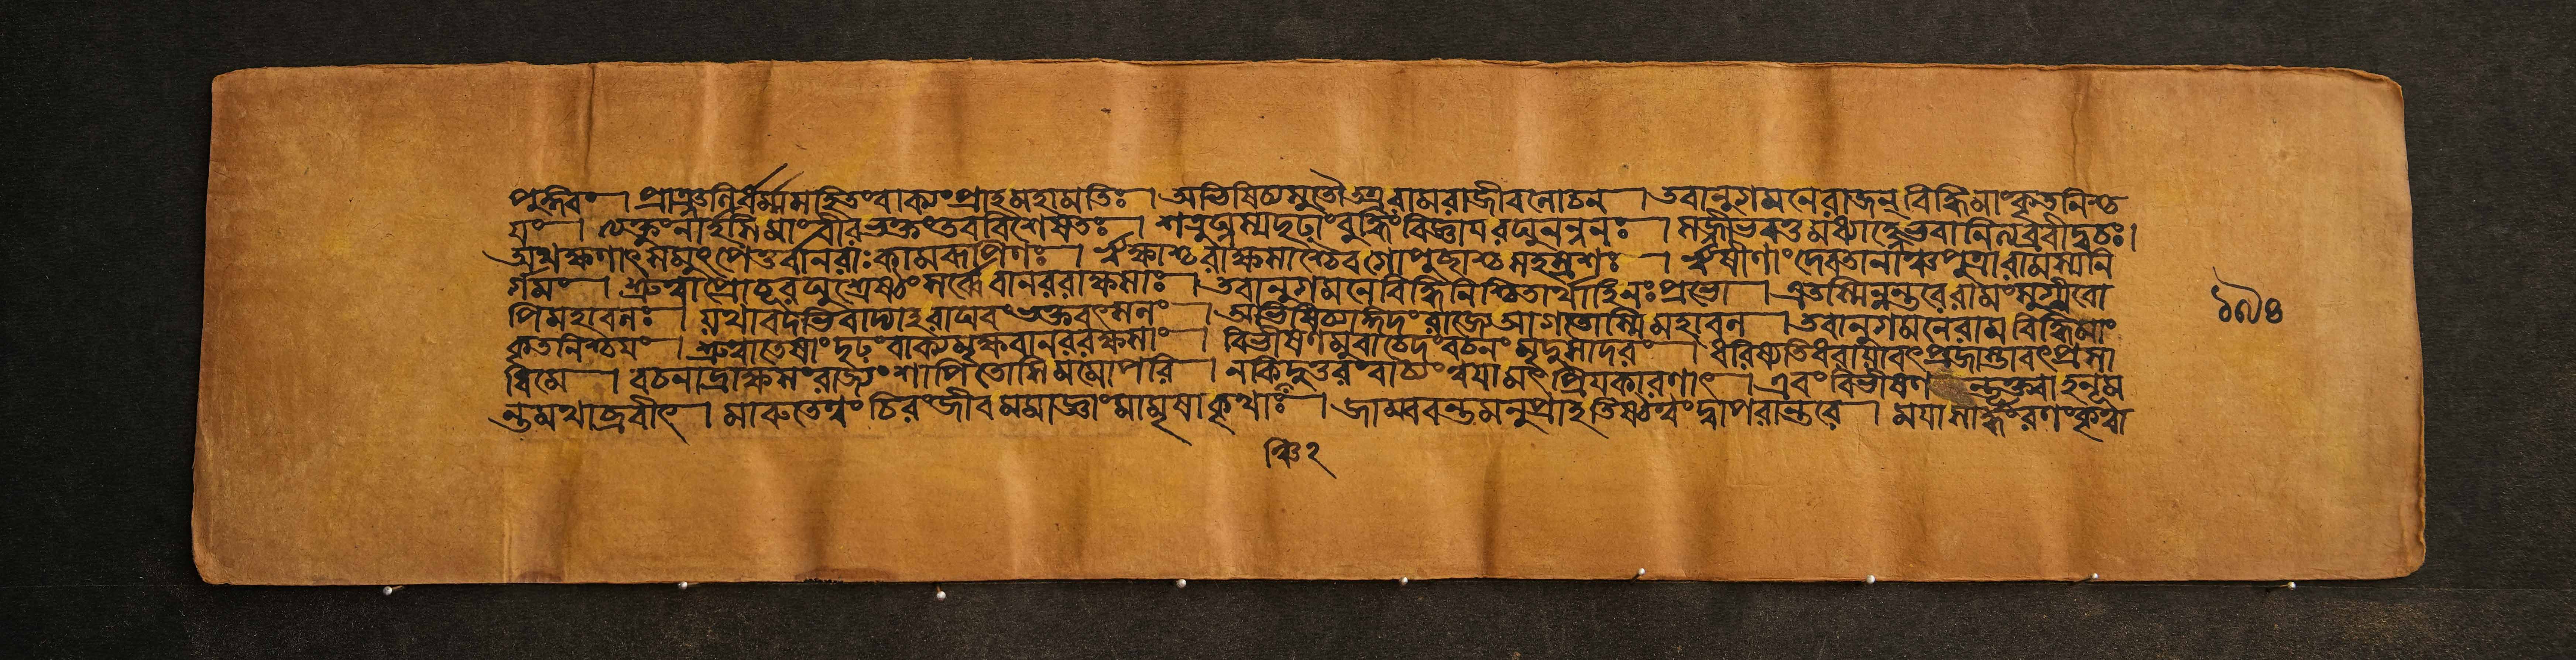 পুঙ্গবং । প্রাঞ্জলির্ধর্ম্মসহিতং বাক্যং প্রাহ মহামতিঃ । অভিষিচ্য সুতৌ তত্র রামরাজীবলোচন । তবানুগমনে রাজন্ বিদ্ধি মাং কৃতনিশ্চ
য়ং । ত্যক্তুং নার্হসি মাং বীর ভক্তং তব বিশেষতঃ । শত্রুঘ্নস্য দৃঢাং বুদ্ধিং বিজ্ঞায় রঘুনন্দনঃ । সজ্জীভবতু মধ্যাহ্নে ভবানিত্যব্রবীদ্বচঃ।
অথ ক্ষণাৎ সমুৎপেতুর্বানরাঃ কামরূপিণঃ । ঋক্ষাশ্চ রাক্ষসাশ্চৈব গোপুচ্ছাশ্চ সহস্রশঃ । ঋষীণাং দেবতানাঞ্চ পুত্রা রামস্য নি
র্গমং । শ্রুত্বা প্রোচূ রঘুশ্রেষ্ঠং সর্ব্বে বানররাক্ষসাঃ । তবানুগমনে বিদ্ধি নিশ্চিতার্থান্ হি নঃ প্রভো । এতস্মিন্নন্তরে রামং সুগ্রীবো
পি মহাবলঃ । যথাবদভিবাদ্যাহ রাঘবং ভক্তবৎসলং । অভিষিচ্যাঙ্গদং রাজ্যে আগতোস্মি মহাবল । তবানুগমনে রাম বিদ্ধি মাং
কৃতনিশ্চয়ং । শ্রুত্বা তেষাং দৃঢং বাক্যমৃক্ষবানররক্ষসাং । বিভীষণমুবাচেদং বচনং মৃদুসাদরং । ধরিষ্যতি ধরা যাবৎ প্রজাস্তাবৎ প্রশা
ধি মে । বচনাদ্রাক্ষসং রাজ্যং শাপিতোসি মমোপরি । ন কিঞ্চিদুত্তরং বাচ্যং ত্বয়া মৎপ্রিয়কারণাৎ । এবং বিভীষণন্তূক্ত্বা হনূম
ন্তমথাব্রবীৎ । মারুতে ত্বং চিরংজীব মমাজ্ঞাং মা মৃষা কৃথাঃ । জাম্ববন্তমনুপ্রাহ তিষ্ঠ ত্বং দ্বাপরান্তরে । ময়া সার্দ্ধং রণং কৃত্বা
ঞ্চি২
১৯৪